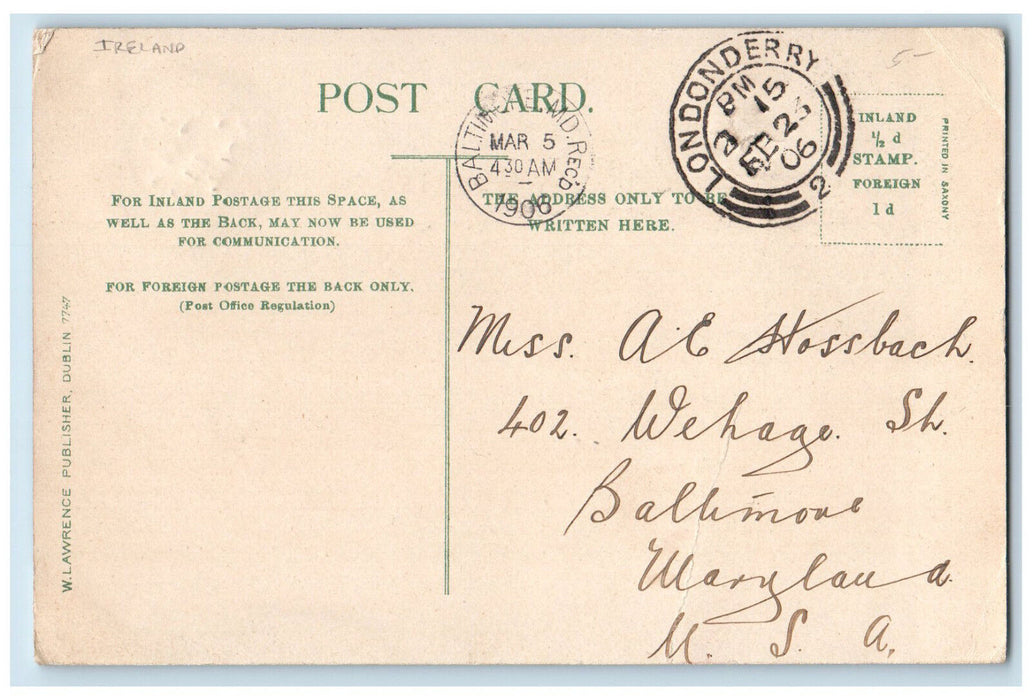 IRELAND
5-
POST CARD.
BALTIMORE, MD. REC'D
MAR 5
4 30 AM
1906
LONDONDERRY
PM
15
FE 23
06
2
INLAND
½ d
STAMP.
FOREIGN
1 d
PRINTED IN SAXONY
FOR INLAND POSTAGE THIS SPACE, AS
WELL AS THE BACK, MAY NOW BE USED
FOR COMMUNICATION.
FOR FOREIGN POSTAGE THE BACK ONLY.
(Post Office Regulation)
THE ADDRESS ONLY TO BE
WRITTEN HERE.
W. LAWRENCE PUBLISHER, DUBLIN 7747
Miss. A E Hossbach.
402. Wehage. St.
Baltimore
Maryland.
U. S. A.